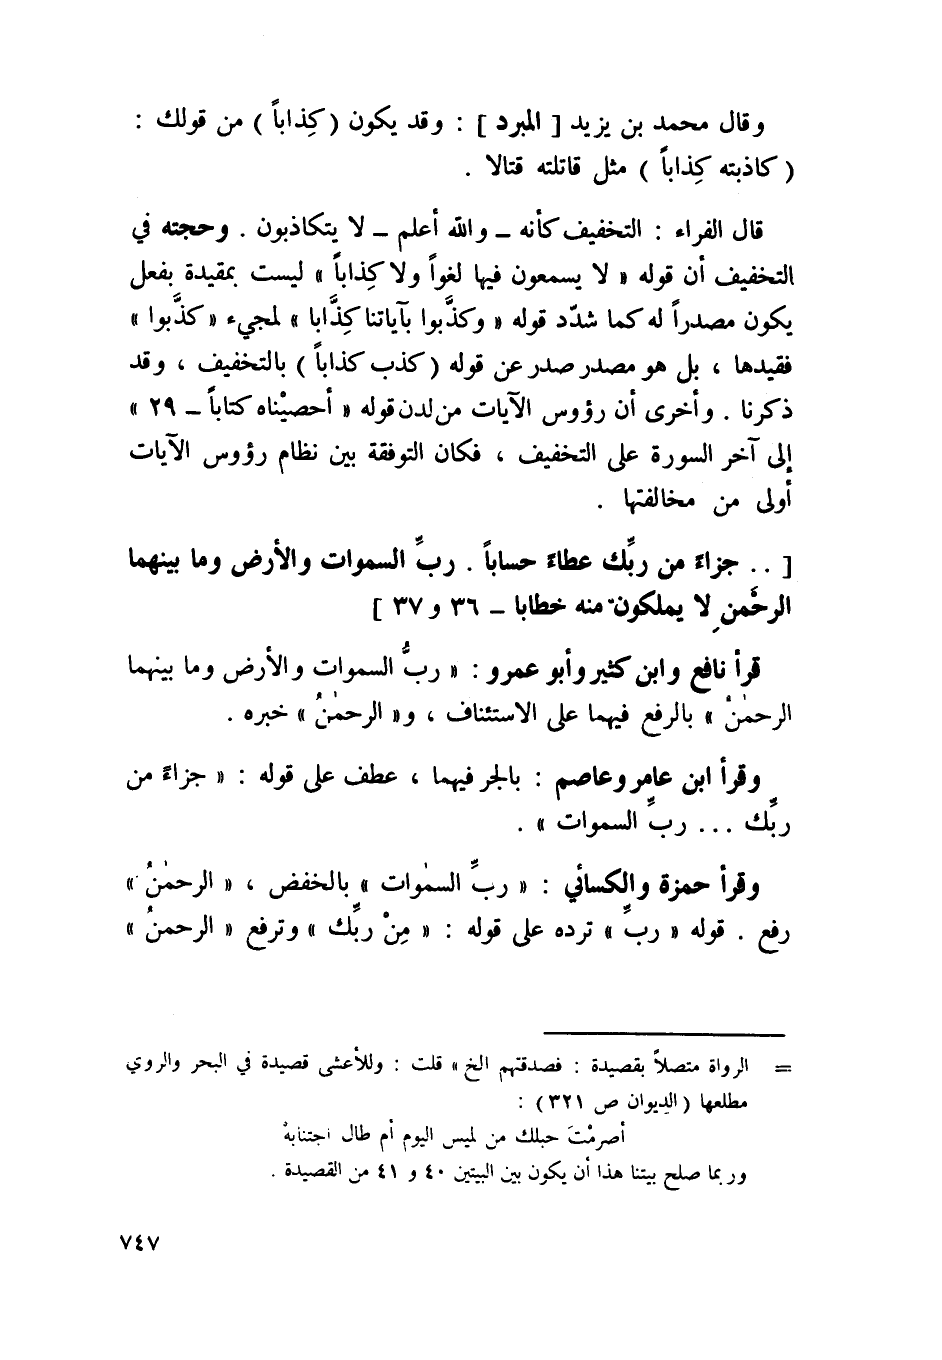 وقال محمد بن يزيد [ المبرد ] : وقد يكون ( كِذاباً ) من قولك :
( كاذبته كِذاباً ) مثل قاتلته قتالا .
قال الفراء : التخفيف كأنه ـ والله أعلم ـ لا يتكاذبون . وحجته في
التخفيف أن قوله « لا يسمعون فيها لغواً ولا كِذاباً » ليست بمقيدة بفعل
يكون مصدراً له كما شدّد قوله « وكذَّبوا بآياتنا كِذَّابا » لمجيء « كذَّبوا »
فقيدها ، بل هو مصدر صدر عن قوله ( كذب كذاباً ) بالتخفيف ، وقد
ذكرنا . وأخرى أن رؤوس الآيات من لدن قوله « أحصيْناه كتاباً ـ ٢٩ »
إلى آخر السورة على التخفيف ، فكان التوفقة بين نظام رؤوس الآيات
أولى من مخالفتها .
[ .. جزاءً من ربِّك عطاءً حساباً . ربِّ السموات والأرض وما بينهما
الرحْمنِ لا يملكون منه خطابا ـ ٣٦ و ٣٧ ]
قرأ نافع وابن كثير وأبو عمرو : « ربُّ السموات والأرض وما بينهما
الرحمٰنُ » بالرفع فيهما على الاستئناف ، و« الرحمٰنُ » خبره .
وقرأ ابن عامر وعاصم : بالجر فيهما ، عطف على قوله : « جزاءً من
ربِّك ... ربِّ السموات » .
وقرأ حمزة والكسائي : « ربِّ السمٰوات » بالخفض ، « الرحمٰنُ »
رفع . قوله « ربِّ » ترده على قوله : « مِنْ ربِّك » وترفع « الرحمنُ »
= الرواة متصلاً بقصيدة : فصدقتهم الخ » قلت : وللأعشى قصيدة في البحر والروي
مطلعها ( الديوان ص ٣٢١ ) :
أصرمْتَ حبلك من لميس اليوم أم طال اجتنابهْ
وربما صلح بيتنا هذا أن يكون بين البيتين ٤٠ و ٤١ من القصيدة .
٧٤٧